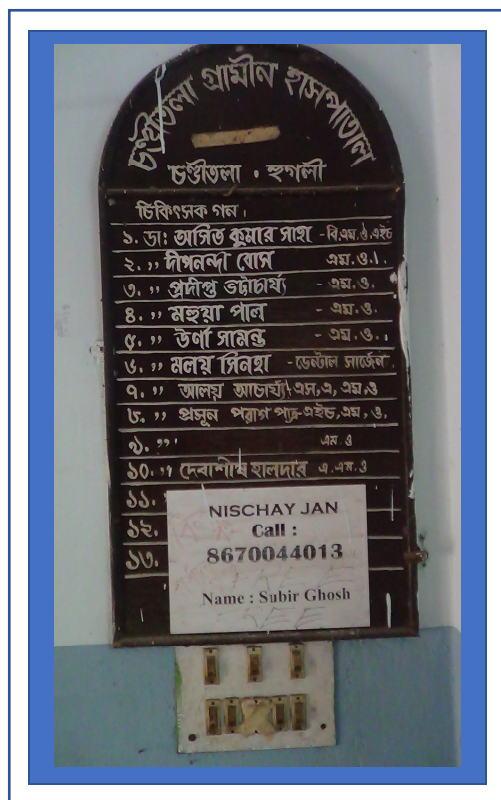 চণ্ডীতলা গ্রামীন হাসপাতাল
চণ্ডীতলা • হুগলী
চিকিৎসক গন।
১. ডা: অসিত কুমার সাহা - বি.এম.ও.এইচ
২. ,, দীপনন্দা বোস এম.ও.।.
৩. ,, প্রদীপ্ত ভট্টাচার্য্য - এম.ও.
৪. ,, মহুয়া পাল - এম.ও.
৫. ,, ঊর্ণা সামন্ত - এম.ও..
৬. ,, মলয় সিনহা - ডেন্টাল সার্জেন.
৭. ,, আলয় আচার্য্য - এস,এ,এম,ও
৮. ,, প্রসূন পরাগ পাত্র-এইচ,এম,ও.
৯. ,, এম.ও
১০. ,, দেবাশীষ হালদার এ.এম.ও
১১.
১২.
১৩.
NISCHAY JAN
Call :
8670044013
Name : Subir Ghosh